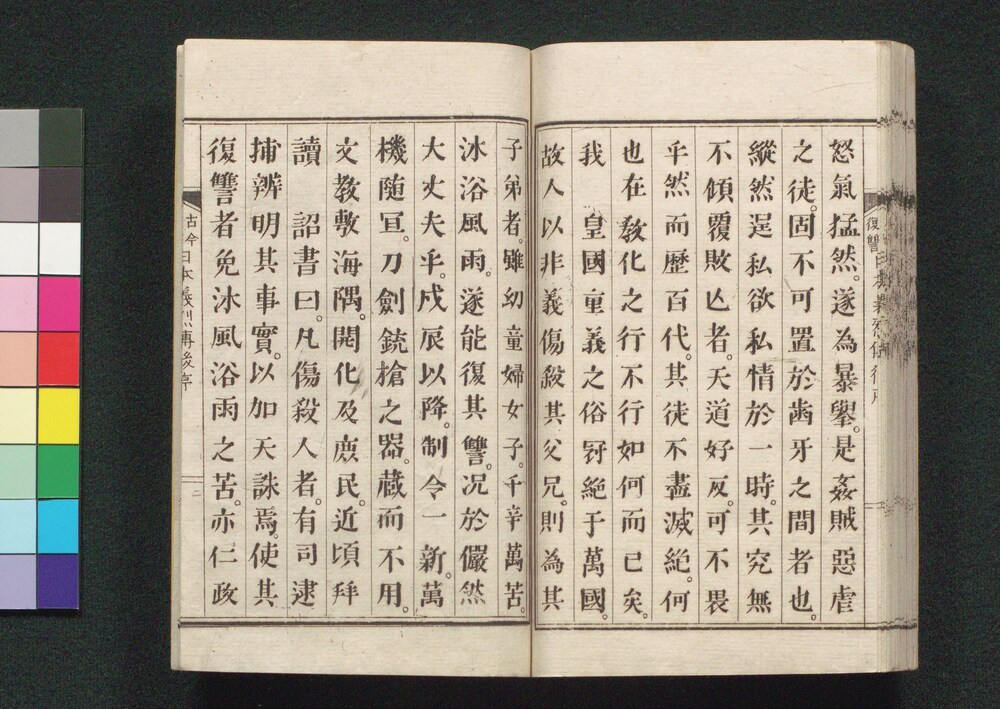 怒氣猛然。遂為暴擧。是姦賊惡虐
之徒。固不可置於齒牙之間者也。
縱然逞私欲私情於一時。其究無
不傾覆敗亡者。天道好反。可不畏
乎然而歷百代。其徒不盡滅絕。何
也在敎化之行不行如何而已矣。
我　皇國重義之俗冠絕于萬國。
故人以非義傷殺其父兄。則為其
子弟者。雖幼童婦女子。千辛萬苦。
沐浴風雨。遂能復其讐。况於儼然
大丈夫乎。戍辰以降。制令一新。萬
機随宜。刀劍銃槍之器。藏而不用。
文教敷海隅。開化及庶民。近頃拜
讀　詔書曰。凡傷殺人者。有司逮
捕辨明其事實。以加天誅焉。使其
復讐者免沐風浴雨之苦。亦仁政
古今日本義烈傳後序
二